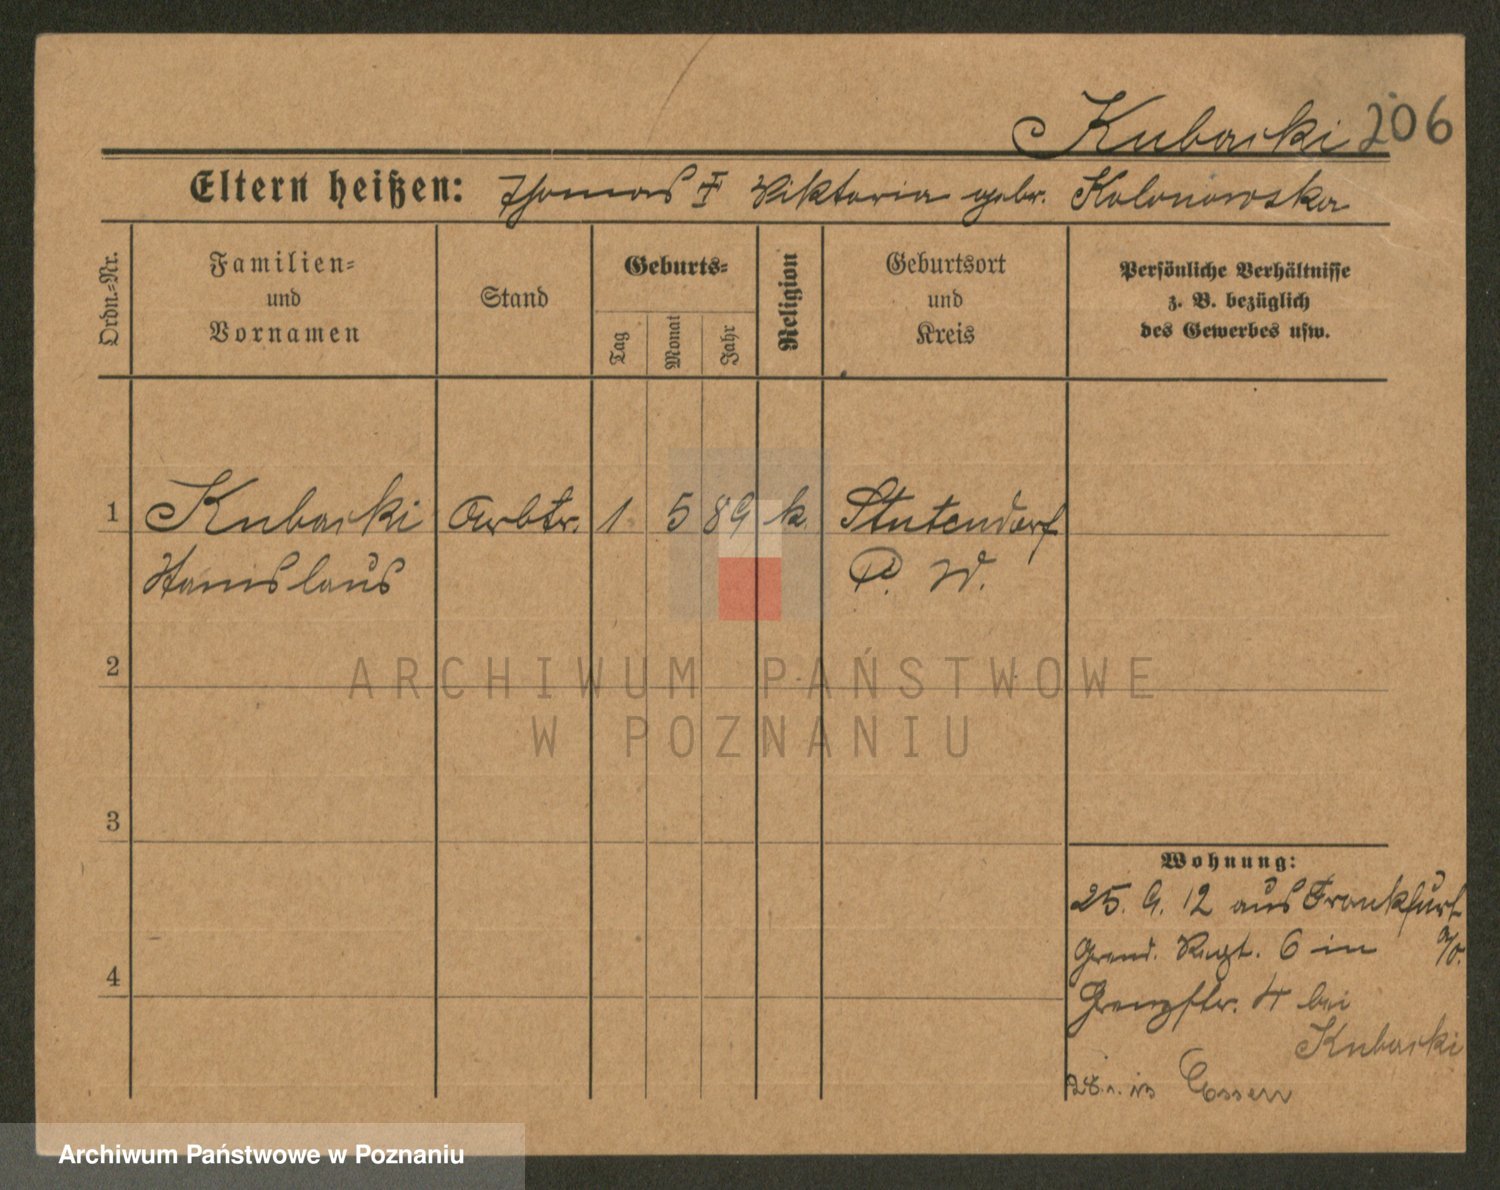 Kubacki 206
Eltern heißen: Thomas † Viktoria gebr. Kolonowska
Ordn.=Nr.
Familien=
und
Vornamen
Stand
Geburts=
Tag
Monat
Jahr
Religion
Geburtsort
und
Kreis
Persönliche Verhältnisse
z. B. bezüglich
des Gewerbes usw.
1 Kubacki Arbtr. 1. 5 89 k. Stutendorf
Stanislaus P. W.
2
3
4
Wohnung:
25. 9. 12 aus Frankfurt
Grend. Regt. 6 in a/o.
Grenzstr. 4 bei
Kubacki
Essen
ARCHIWUM PAŃSTWOWE
W POZNANIU
Archiwum Państwowe w Poznaniu